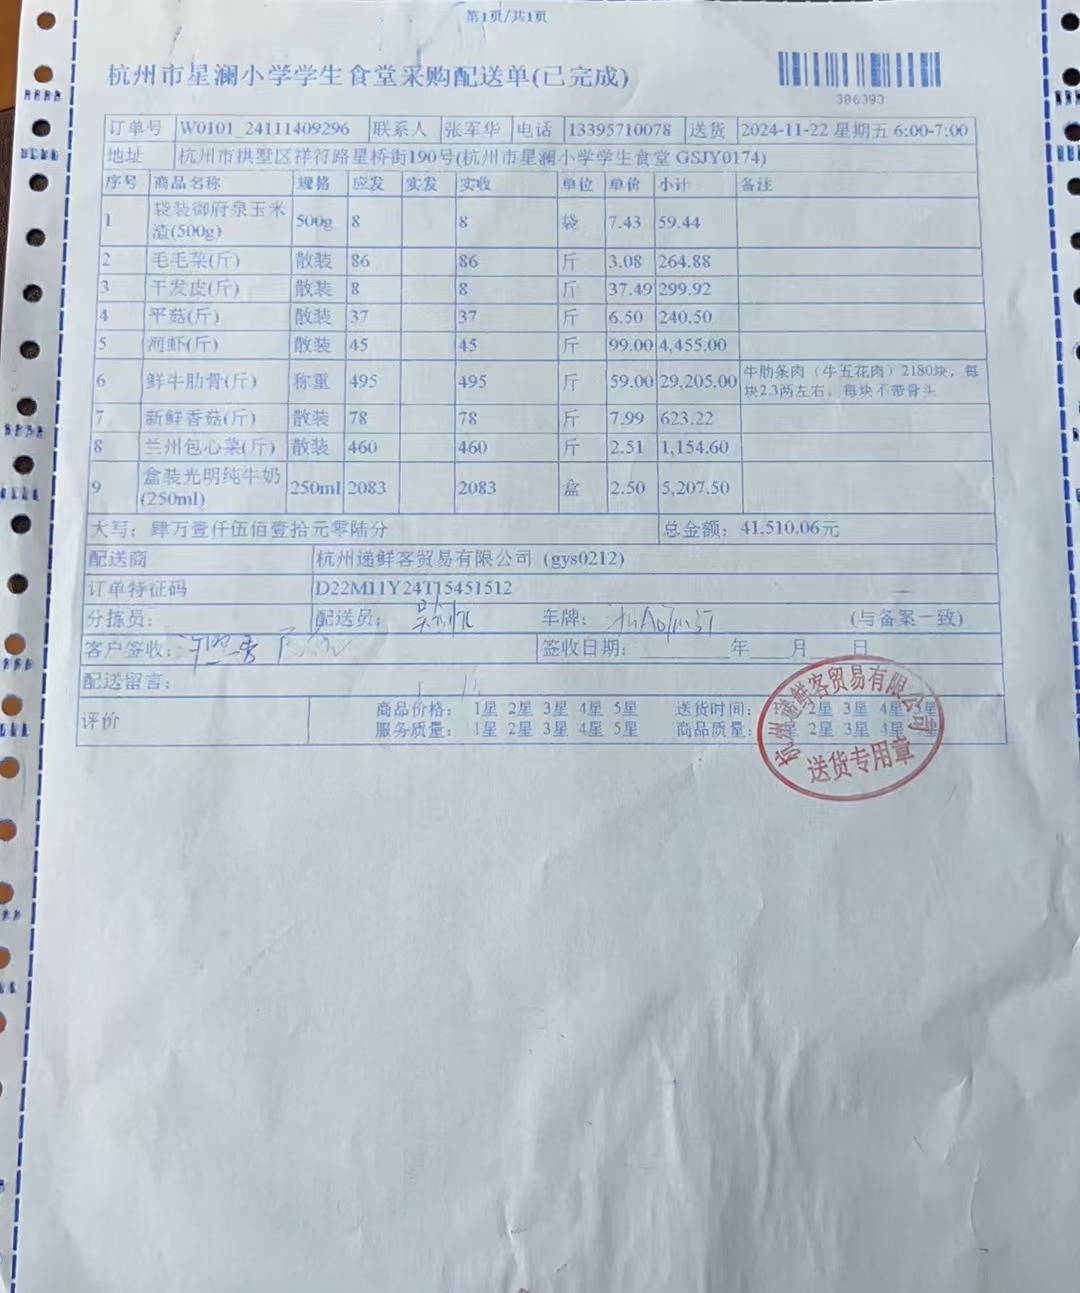 第1页/共1页
杭州市星澜小学学生食堂采购配送单(已完成)
386393
订单号 W0101_24111409296 联系人 张军华 电话 13395710078 送货 2024-11-22 星期五 6:00-7:00
地址 杭州市拱墅区祥符路星桥街190号(杭州市星澜小学学生食堂 GSJY0174)
序号 商品名称 规格 应发 实发 实收 单位 单价 小计 备注
1 袋装御府泉玉米渣(500g) 500g 8 8 袋 7.43 59.44
2 毛毛菜(斤) 散装 86 86 斤 3.08 264.88
3 干发皮(斤) 散装 8 8 斤 37.49 299.92
4 平菇(斤) 散装 37 37 斤 6.50 240.50
5 河虾(斤) 散装 45 45 斤 99.00 4,455.00
6 鲜牛肋骨(斤) 称重 495 495 斤 59.00 29,205.00 牛肋条肉（牛五花肉）2180块，每块2.3两左右，每块不带骨头
7 新鲜香菇(斤) 散装 78 78 斤 7.99 623.22
8 兰州包心菜(斤) 散装 460 460 斤 2.51 1,154.60
9 盒装光明纯牛奶(250ml) 250ml 2083 2083 盒 2.50 5,207.50
大写：肆万壹仟伍佰壹拾元零陆分 总金额：41,510.06元
配送商 杭州递鲜客贸易有限公司（gys0212）
订单特征码 D22M11Y24T15451512
分拣员： 配送员： 车牌： (与备案一致)
客户签收： 签收日期： 年 月 日
配送留言：
评价 商品价格： 1星 2星 3星 4星 5星 送货时间： 2星 3星 4星 5星
服务质量： 1星 2星 3星 4星 5星 商品质量： 2星 3星 4星
杭州递鲜客贸易有限公司
送货专用章